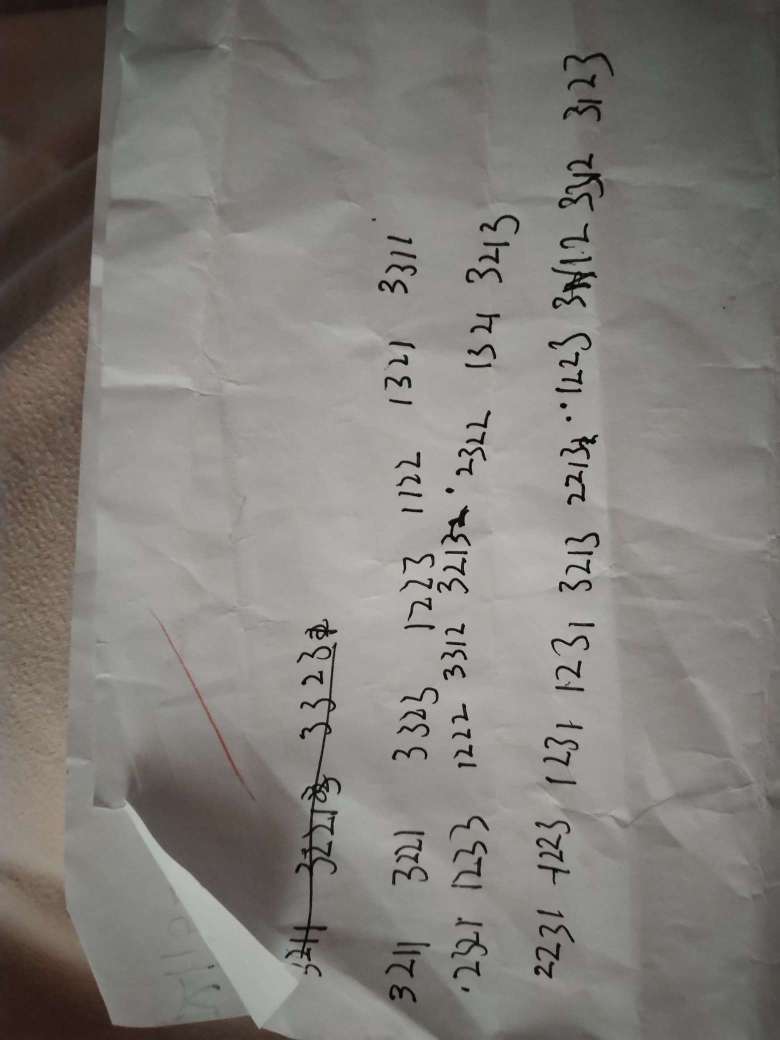 3211 3221 3323
3211 3221 3323 1223 1122 1321 3311
2321 1233 1222 3312 3213 2322 1321 3213
2231 1223 1231 1231 3213 2213 1223 3112 3312 3123